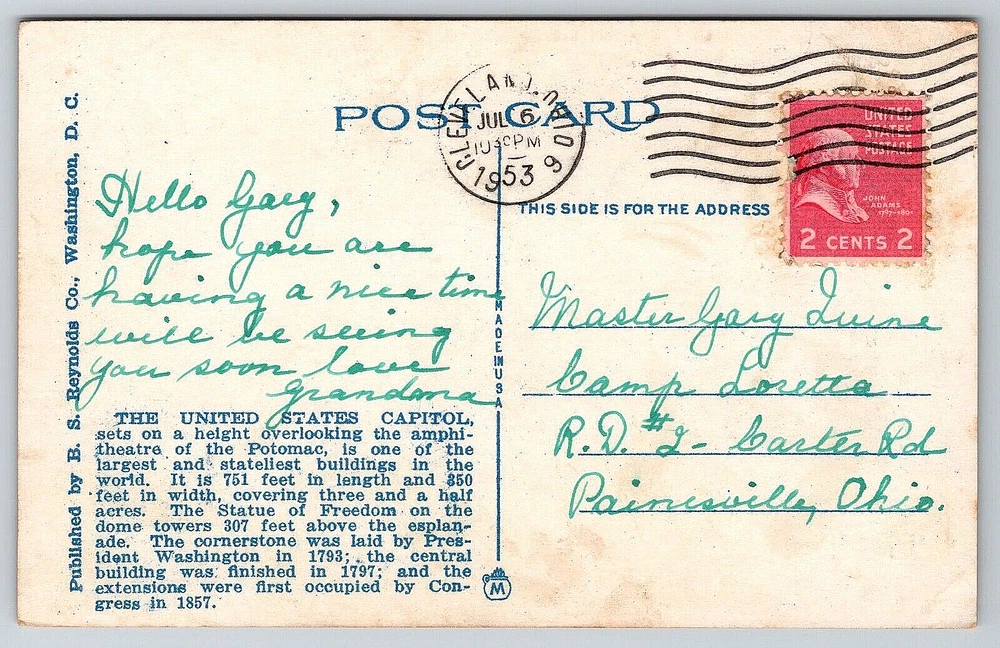 POST CARD
CLEVELAND, OHIO 9
JUL 6
1030 PM
1953
UNITED
STATES
POSTAGE
JOHN
ADAMS
1797-1801
2 CENTS 2
THIS SIDE IS FOR THE ADDRESS
Published by B. S. Reynolds Co., Washington, D. C.
Hello Gary,
hope you are
having a nice time
will be seeing
you soon love
Grandma
THE UNITED STATES CAPITOL,
sets on a height overlooking the amphi-
theatre of the Potomac, is one of the
largest and stateliest buildings in the
world. It is 751 feet in length and 350
feet in width, covering three and a half
acres. The Statue of Freedom on the
dome towers 307 feet above the esplan-
ade. The cornerstone was laid by Pres-
ident Washington in 1793; the central
building was finished in 1797; and the
extensions were first occupied by Con-
gress in 1857.
MADE IN USA
M
Master Gary
Camp Loretta
R.D. #2- Carter Rd
Painesville, Ohio.